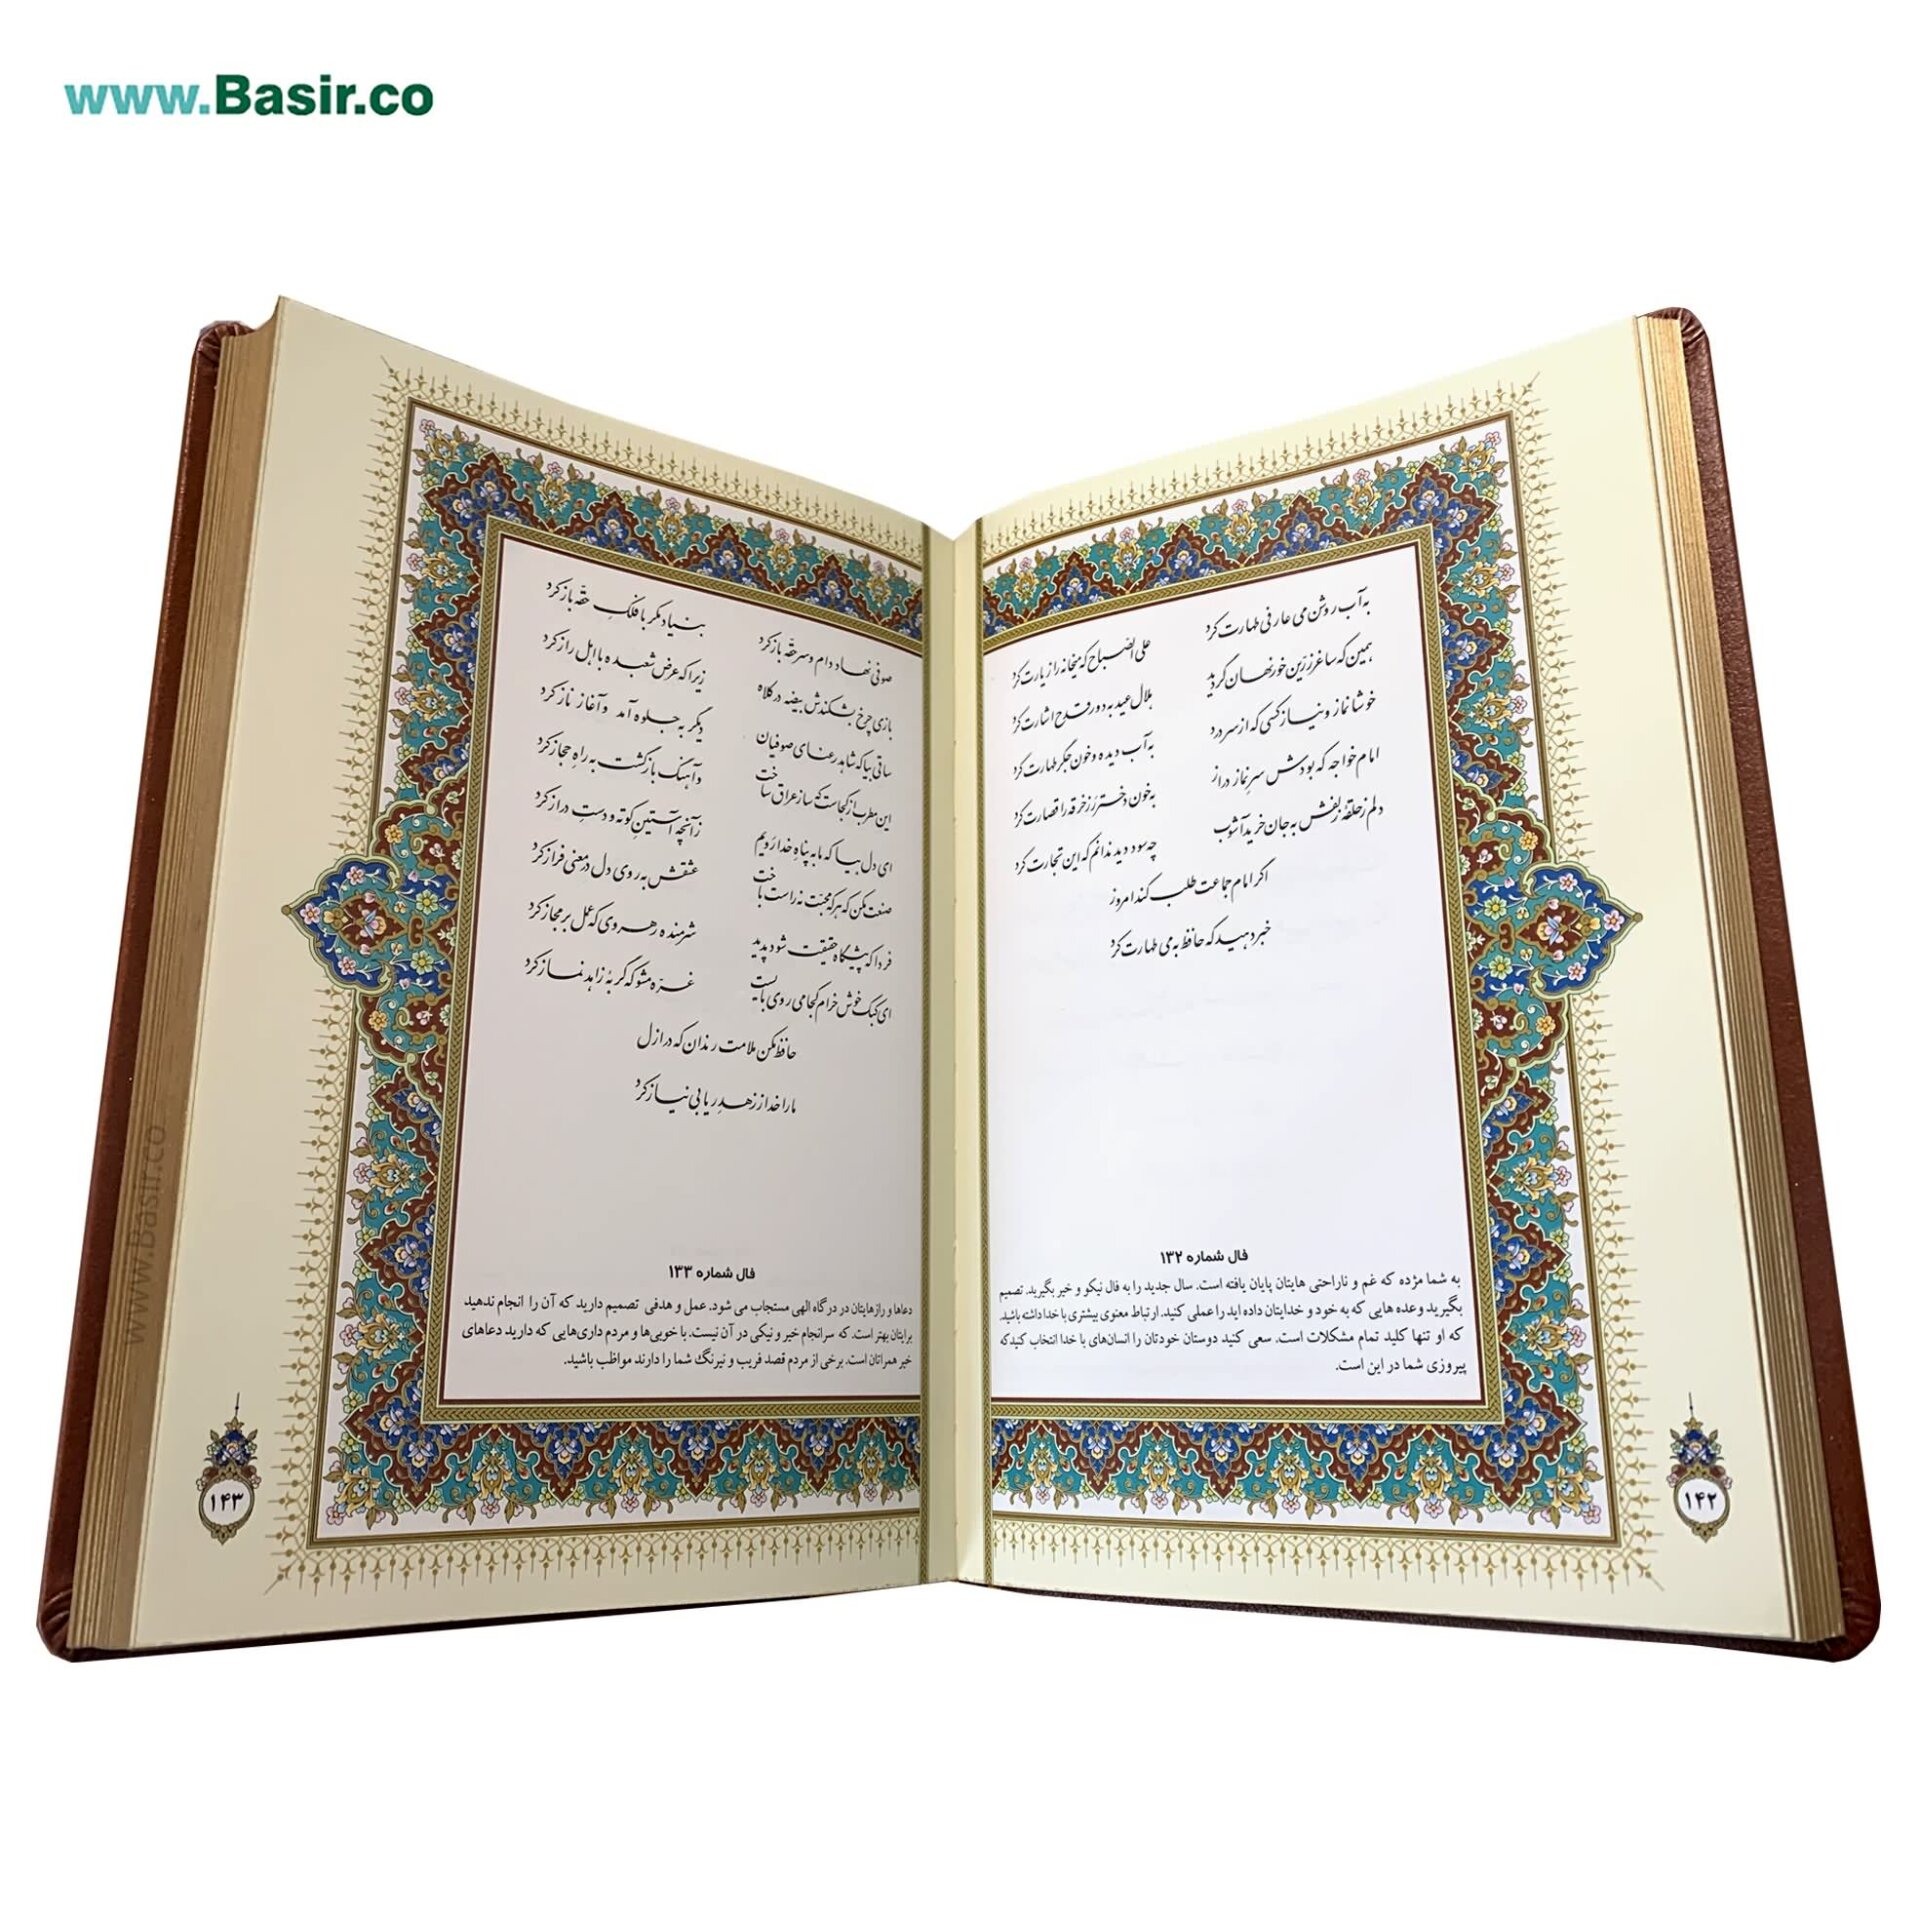 www.Basir.co
به آب روشن می عارفی طهارت کرد
علی الصّباح که میخانه را زیارت کرد
همین که ساغر زرّین خور نهان گردید
هلال عید به دور قدح اشارت کرد
خوشا نماز و نیاز کسی که از سر درد
به آب دیده و خون جگر طهارت کرد
امام خواجه که بودش سر نماز دراز
به خون دختر رز خرقه را قصارت کرد
دلم ز حلقهٔ زلفش به جان خرید آشوب
چه سود دید ندانم که این تجارت کرد
اگر امام جماعت طلب کند امروز
خبر دهید که حافظ به می طهارت کرد
فال شماره ۱۳۲
به شما مژده که غم و ناراحتی هایتان پایان یافته است. سال جدید را به فال نیکو و خیر بگیرید. تصمیم
بگیرید وعده هایی که به خود و خدایتان داده اید را عملی کنید. ارتباط معنوی بیشتری با خدا داشته باشید.
که او تنها کلید تمام مشکلات است. سعی کنید دوستان خودتان را انسان‌های با خدا انتخاب کنید که
پیروزی شما در این است.
۱۴۲
صوفی نهاد دام و سر حقّه باز کرد
بنیاد مکر با فلکِ حقّه باز کرد
بازی چرخ بشکندش بیضه در کلاه
زیرا که عرض شعبده با اهل راز کرد
ساقی بیا که شاهد رعنای صوفیان
دیگر به جلوه آمد و آغاز ناز کرد
این مطرب از کجاست که ساز عراق ساخت
و آهنگ بازگشت به راهِ حجاز کرد
ای دل بیا که ما به پناهِ خدا رَویم
زآنچه آستینِ کوته و دستِ دراز کرد
صنعت مکن که هر که محبّت نه راست باخت
عشقش به روی دل در معنی فراز کرد
فردا که پیشگاه حقیقت شود پدید
شرمنده رهروی که عمل بر مجاز کرد
ای کبک خوش خرام کجا می روی بایست
غرّه مشو که گربهٔ زاهد نماز کرد
حافظ مکن ملامت رندان که در ازل
ما را خدا ز زهدِ ریا بی نیاز کرد
فال شماره ۱۳۳
دعاها و رازهایتان در درگاه الهی مستجاب می شود. عمل و هدفی تصمیم دارید که آن را انجام ندهید
برایتان بهتر است. که سرانجام خیر و نیکی در آن نیست. با خوبی‌ها و مردم داری‌هایی که دارید دعاهای
خیر همراتان است. برخی از مردم قصد فریب و نیرنگ شما را دارند مواظب باشید.
۱۴۳
www.Basir.co